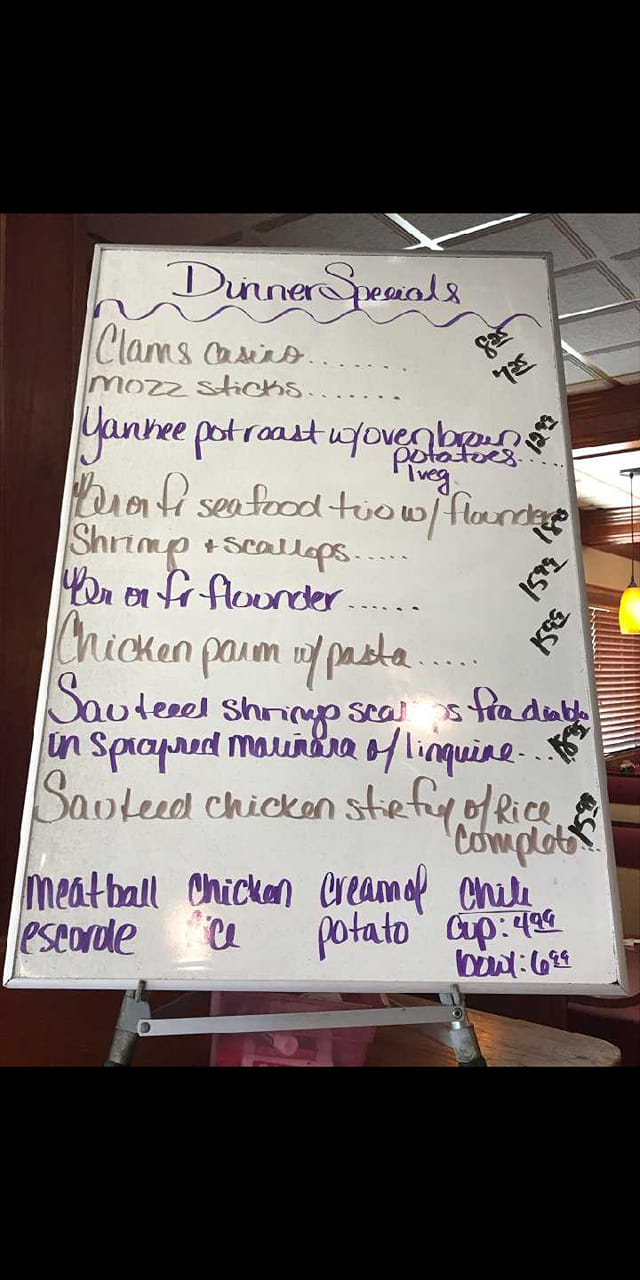 Dinner Specials
Clams casino....... 8 25
mozz sticks....... 7 25
Yankee pot roast w/oven brown 12 99
potatoes.....
1 veg
Br or fr seafood trio w/ flounder
Shrimp + scallops.....
Br or fr flounder...... 15 99
Chicken parm w/pasta..... 15 99
Sauteed shrimp scallops fradiablo
in spicy red marinara o/linguine...
Sauteed chicken stirfry o/Rice 15 99
complete...
meatball chicken cream of Chili
escorole rice potato cup: 4 99
bowl: 6 99